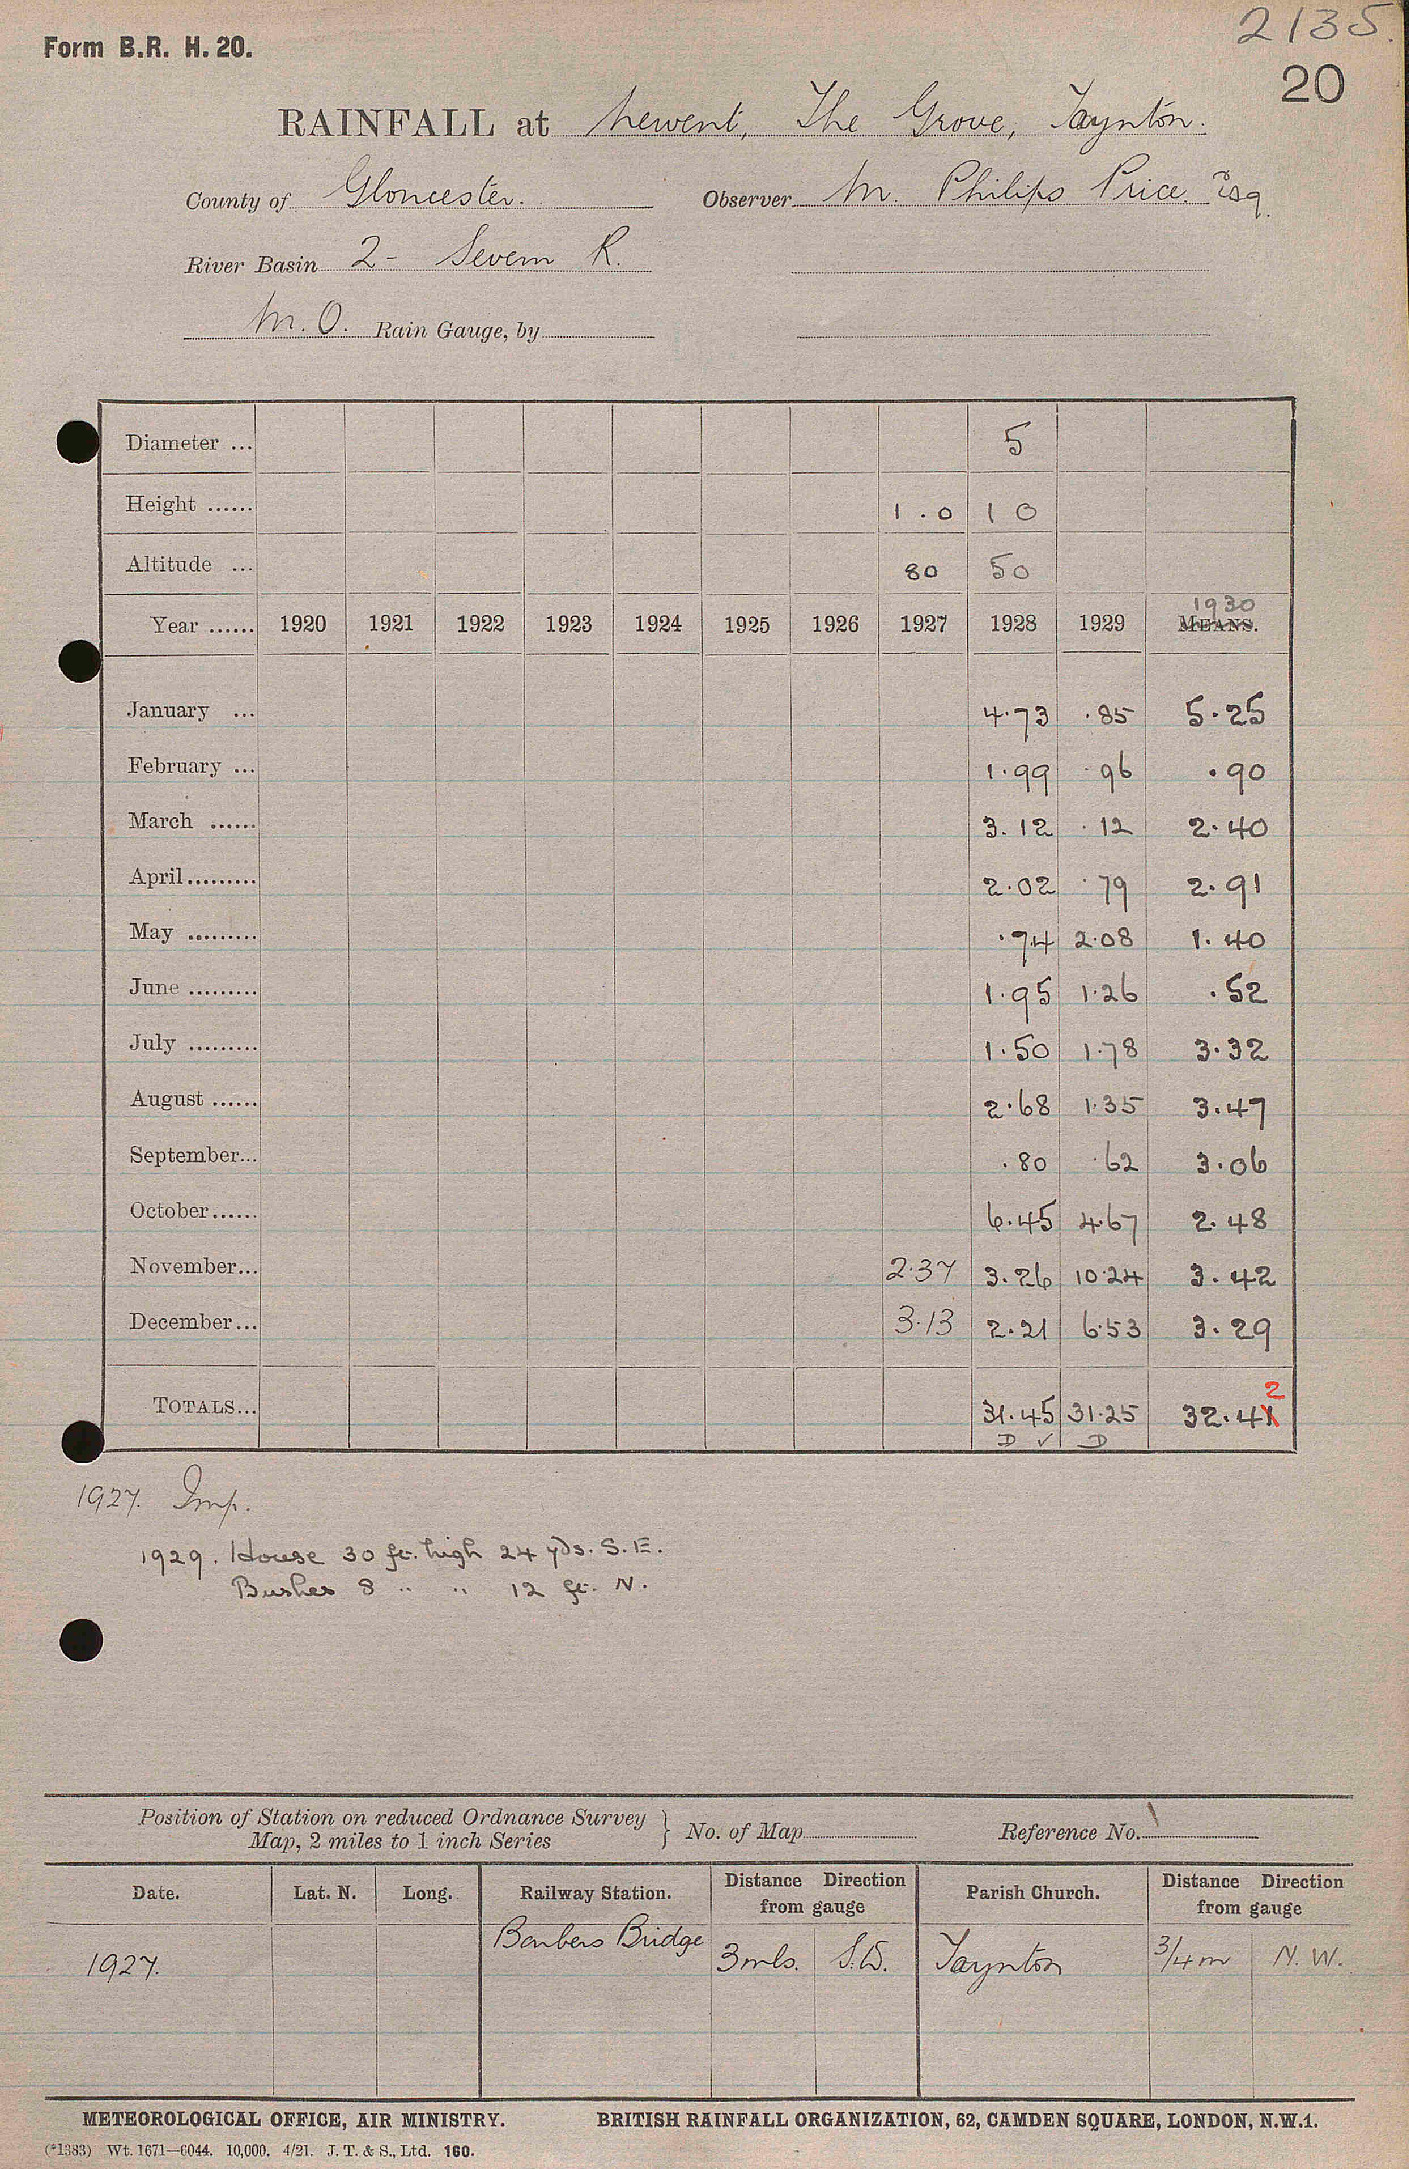 2135.
Form B.R. H. 20.
20
RAINFALL at Newent, The Grove, Taynton.
County of Gloucester. Observer M. Philips Price. Esq.
River Basin 2 - Severn R.
M.O. Rain Gauge, by
Diameter ... 5
Height ...... 1.0 10
Altitude ... 80 50
1930
Year ...... 1920 1921 1922 1923 1924 1925 1926 1927 1928 1929 MEANS.
January ... 4.73 .85 5.25
February ... 1.99 .96 .90
March ...... 3.12 .12 2.40
April ......... 2.02 .79 2.91
May ......... .74 2.08 1.40
June ......... 1.95 1.26 .52
July ......... 1.50 1.78 3.32
August ...... 2.68 1.35 3.47
September... .80 .62 3.06
October ...... 6.45 4.67 2.48
November... 2.37 3.26 10.24 3.42
December... 3.13 2.21 6.53 3.29
2
TOTALS... 31.45 31.25 32.41
D ✓ D
1927. Imp.
1929. House 30 ft. high 24 yds. S.E.
Bushes 8 " " 12 ft. N.
Position of Station on reduced Ordnance Survey
Map, 2 miles to 1 inch Series } No. of Map Reference No.
Date. Lat. N. Long. Railway Station. Distance Direction from gauge Parish Church. Distance Direction from gauge
1927. Barbers Bridge 3 mls. Taynton 3/4 m N.W.
METEOROLOGICAL OFFICE, AIR MINISTRY. BRITISH RAINFALL ORGANIZATION, 62, CAMDEN SQUARE, LONDON, N.W.1.
(*1383) Wt. 1671—6044. 10,000. 4/21. J. T. & S., Ltd. 160.